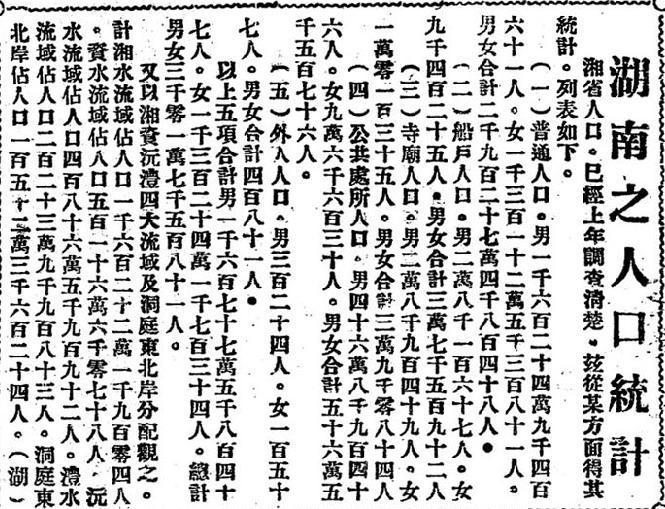 湖南之人口統計
湘省人口。已經上年調查清楚。茲從某方面得其
統計。列表如下。
(一)普通人口。男一千六百二十四萬九千四百
六十一人。女一千三百一十二萬五千三百八十一人。
男女合計二千九百二十七萬四千八百四十八人。
(二)船戶人口。男二萬八千一百六十七人。女
九千四百二十五人。男女合計三萬七千五百九十二人
(三)寺廟人口。男二萬八千九百四十九人。女
一萬零一百三十五人。男女合計三萬九千零八十四人
(四)公共處所人口。男四十六萬八千九百四十
六人。女九萬六千六百三十人。男女合計五十六萬五
千五百七十六人。
(五)外人人口。男三百二十四人。女一百五十
七人。男女合計四百八十一人。
以上五項合計男一千六百七十七萬五千八百四十
七人。女一千三百二十四萬一千七百三十四人。總計
男女三千零一萬七千五百八十一人。
又以湘資沅澧四大流域及洞庭東北岸分配觀之。
計湘水流域佔人口一千六百二十二萬一千九百零四人
。資水流域佔人口五百一十六萬六千零七十八人。沅
水流域佔人口四百八十六萬五千九百九十二人。澧水
流域佔人口二百二十三萬九千九百八十三人。洞庭東
北岸佔人口一百五十二萬三千六百二十四人。(湖)